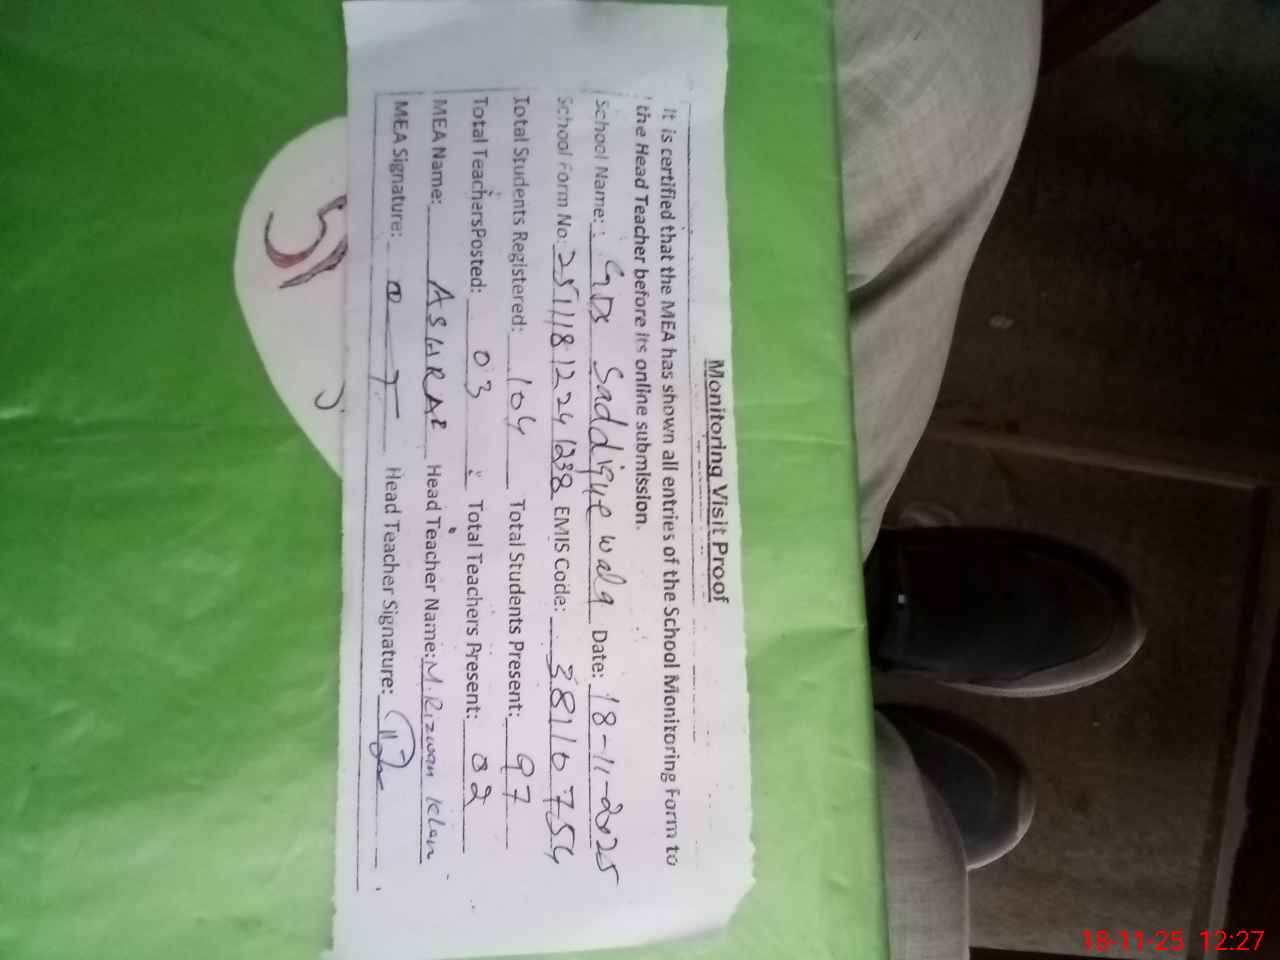 Monitoring Visit Proof
It is certified that the MEA has shown all entries of the School Monitoring Form to
the Head Teacher before its online submission.
School Name: GPS Saddique wala Date: 18-11-2025
School Form No: 25111812241238 EMIS Code: 38110754
Total Students Registered: 104 Total Students Present: 97
Total Teachers Posted: 03 Total Teachers Present: 02
MEA Name: ASHRAF Head Teacher Name: M. Rizwan Khan
MEA Signature: Head Teacher Signature:
18-11-25 12:27